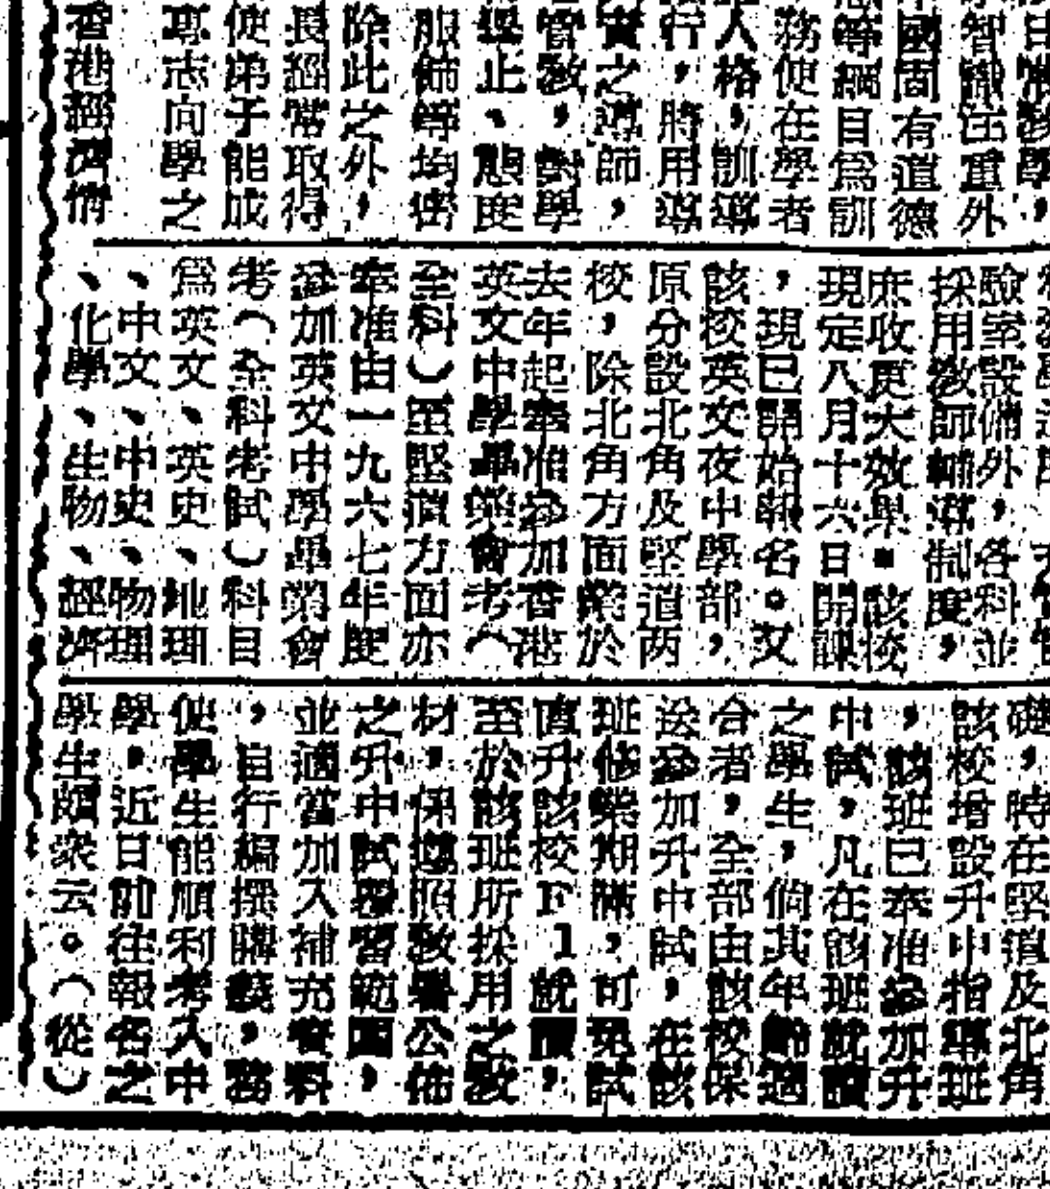 日常教學，
智識注重外
國固有道德
等綱目爲訓
務使在學者
人格，訓導
行，將用導
實之導師，
管教，對學
舉止、態度
服飾等均密
除此之外，
長經常取得
使弟子能成
專志向學之
香港經濟情
驗室設備外，各科並
採用教師輔導制度，
庶收更大效果。該校
現定八月十六日開課
，現已開始報名。又
該校英文夜中學部，
原分設北角及堅道两
校，除北角方面業於
去年起奉准參加香港
英文中學畢業會考（
全科）至堅道方面亦
奉准由一九六七年度
參加英文中學畢業會
考（全科考試）科目
爲英文、英史、地理
、中文、中史、物理
、化學、生物、經濟
礎，時在堅道及北角
該校增設升中指導班
，該班已奉准參加升
中試，凡在該班就讀
之學生，倘其年齡適
合者，全部由該校保
送參加升中試，在該
班修業期滿，可免試
直升該校F1就讀，
至於該班所採用之教
材，係遵照教署公佈
之升中試學習範圍，
並適當加入補充資料
，自行編撰講義，務
使學生能順利考入中
學，近日前往報名之
學生頗衆云。（從）